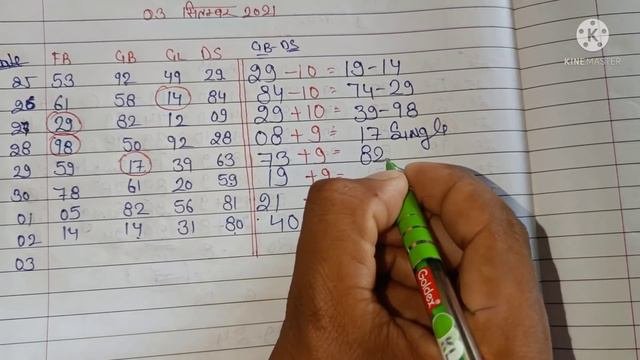 03 सितम्बर 2021
KINEMASTER
FB GB GL DS GB-DS
25 53 92 49 29 29-10= 19-14
26 61 58 14 84 84-10= 74-29
27 29 82 12 09 29+10= 39-98
28 98 50 92 28 08+9= 17 Single
29 59 17 39 63 73+9= 82
30 78 61 20 59 19 +9=
01 05 82 56 81 21
02 14 14 31 80 40
03
Goldex